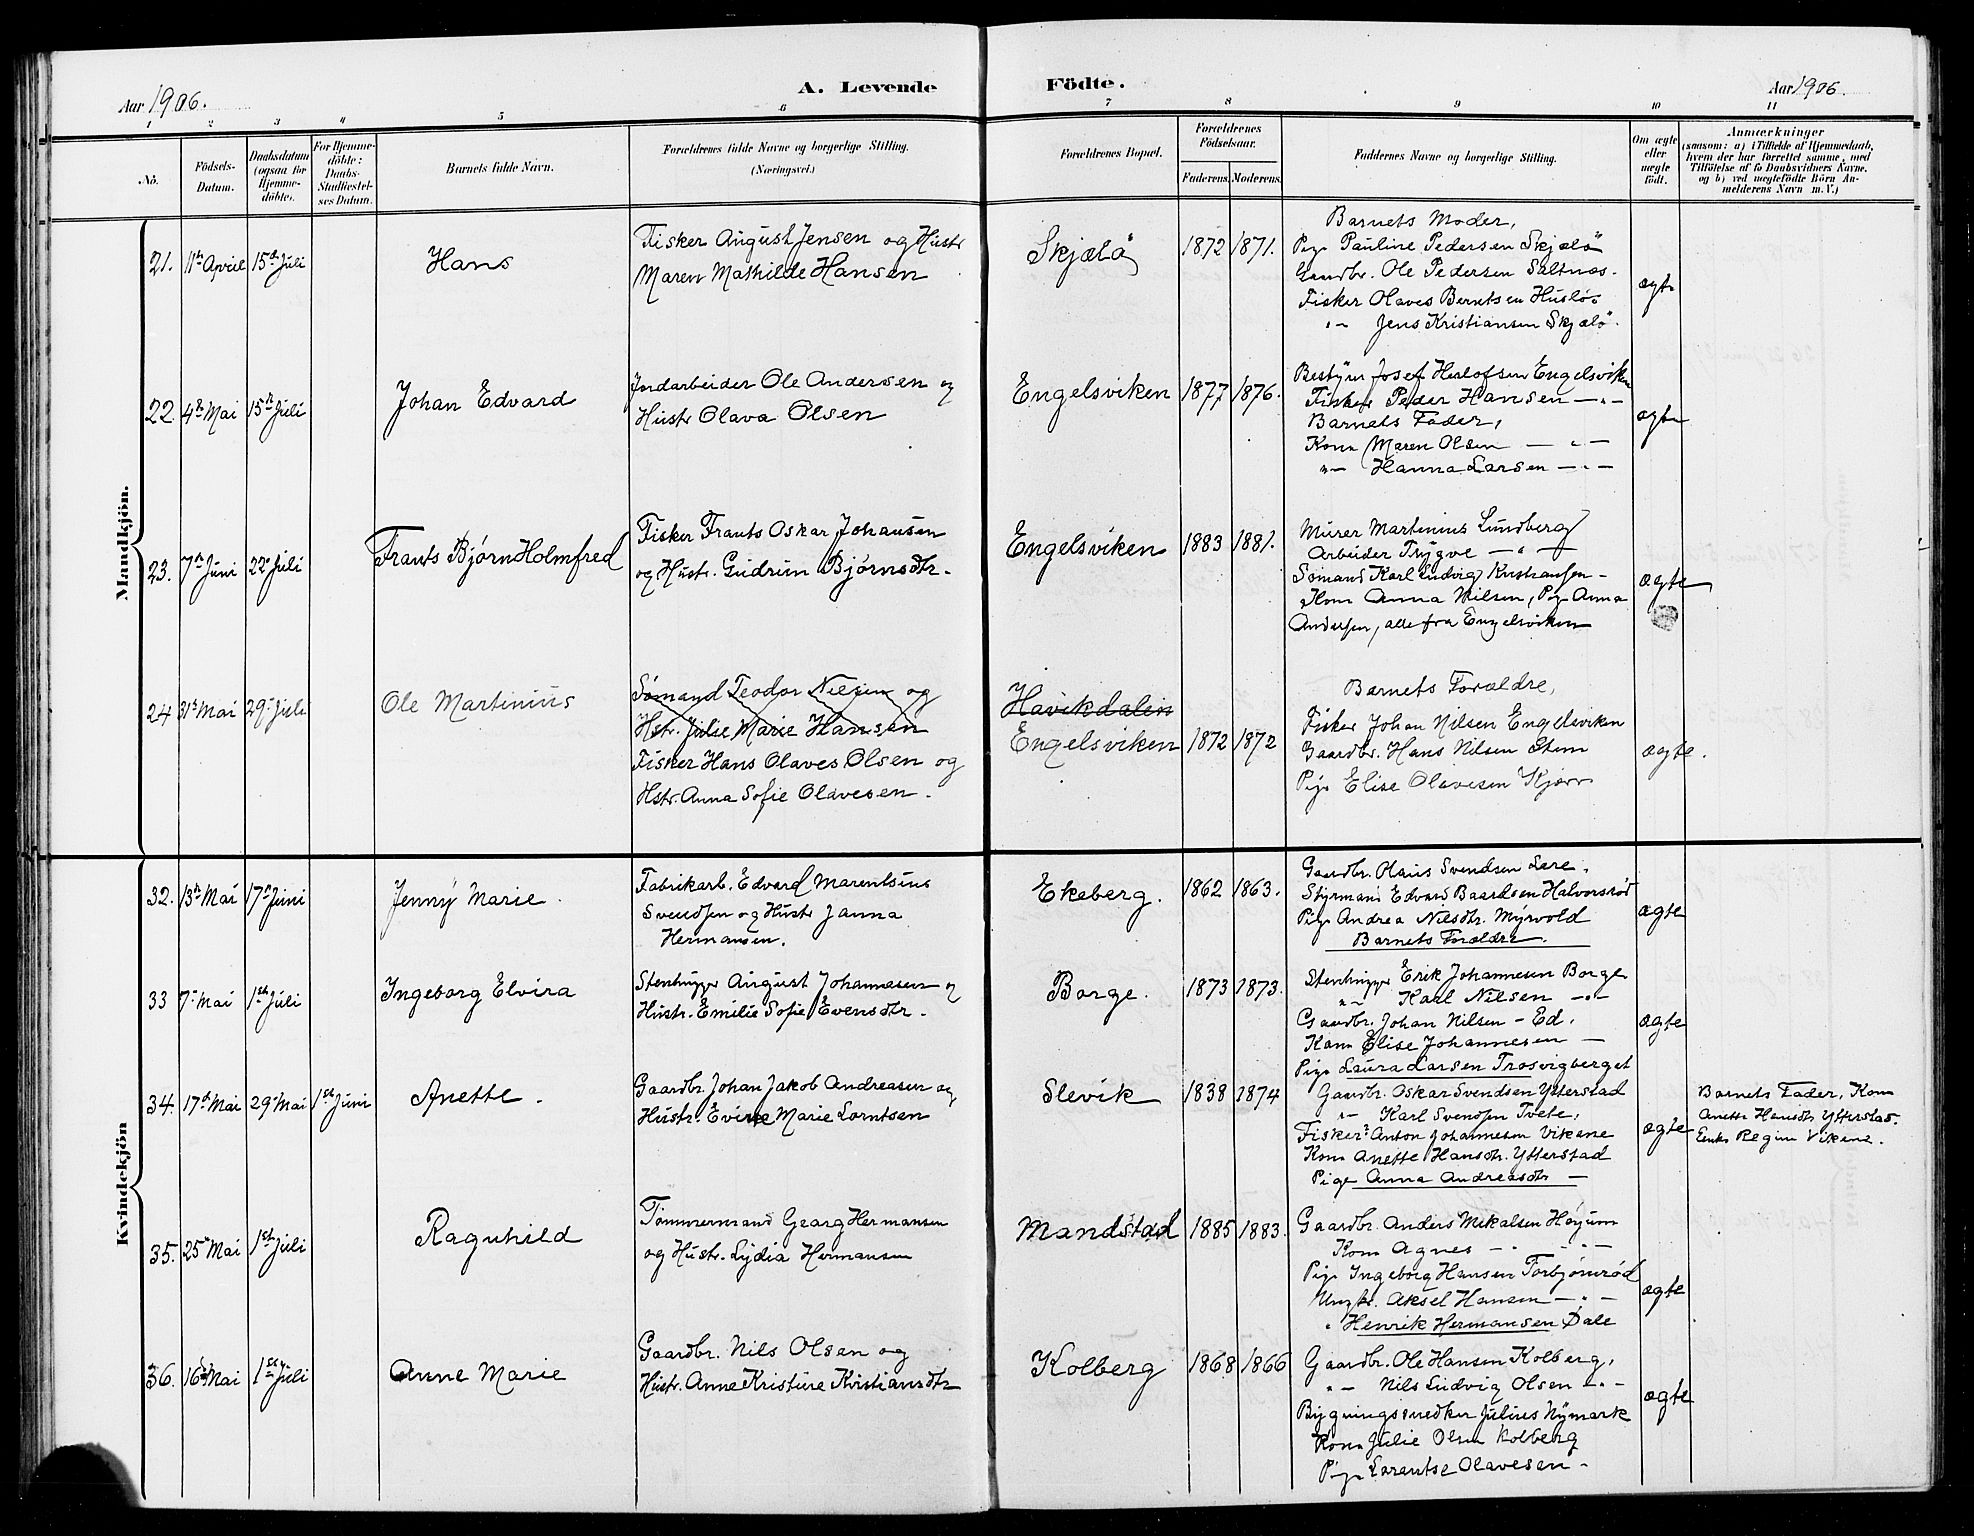 Aar 1906. A. Levende Födte. Aar 1906.
1 2 3 4 5 6 7 8 9 10 11
No.
Födsels-
Datum.
Daabsdatum
(ogsaa for
Hjemme-
döbte).
For Hjemme-
döbte:
Daabs-
Stadfæstel-
ses Datum.
Barnets fulde Navn.
Forældrenes fulde Navne og borgerlige Stilling.
(Næringsvei.)
Forældrenes Bopæl.
Forældrenes
Födselsaar.
Faderens. Moderens.
Faddernes Navne og borgerlige Stilling.
Om ægte
eller
uægte
født.
Anmærkninger
(saasom: a) i Tilfælde af Hjemmedaab,
hvem der har forrettet samme, med
Tilföielse af to Daabsvidners Navne,
og b) ved uægtefödte Börn An-
melderens Navn m. V.)
Mandkjön.
21. 11te April 15de Juli
Hans
Fisker August Jensen og Hustr
Maren Mathilde Hansen
Skjælö
1872 1871.
Barnets Moder,
Pige Pauline Pedersen Skjælö
Gaardbr. Ole Pedersen Saltnes.
Fisker Olaves Berntsen Huslö.
"— Jens Kristiansen Skjælö.
ægte
22. 4de Mai 15de Juli
Johan Edvard
Jordarbeider Ole Andersen og
Hustr Olava Olsen
Engelsviken
1877 1876.
Bestyrer Josef Herlofsen Engelsviken
Fisker Peder Hansen —"—
Barnets Fader,
Kone Maren Olsen — " —
"— Hanna Larsen —"—
ægte
23. 7de Juni 22de Juli
Frants Bjørn Holmfred
Fisker Frants Oskar Johansen
og Hustr. Gudrun Bjørnsdtr.
Engelsviken
1883 1881.
Murer Martinius Lundberg
Arbeider Trygve — " —
Sømand Karl Ludvig Kristiansen —
Kone Anna Nilsen, Pige Anna
Andersen, alle fra Engelsviken
ægte
24 31te Mai 29de Juli
Ole Martinius
Sømand Teodor Nilsen og
Hstr. Julie Marie Hansen
Fisker Hans Olaves Olsen og
Hstr. Anna Sofie Olavesen.
Havikdalen
Engelsviken
1872 1872
Barnets Forældre,
Fisker Johan Nilsen Engelsviken
Gaardbr. Hans Nilsen Elum
Pige Elise Olavesen Kjærr
ægte.
Kvindekjön
32. 13de Mai 17de Juni
Jenny Marie.
Fabrikarb. Edvard Marentsius
Svendsen og Hustr Janna
Hermansen.
Ekeberg.
1862 1863.
Gaardbr. Olaus Svendsen Lere.
Styrmand Edvard Baardsen Halvorsrød
Pige Andrea Nilsdtr. Myrvold
Barnets Forældre.
ægte
33 7de Mai 1ste Juli
Ingeborg Elvira
Stenhugger August Johannesen og
Hustr. Emilie Sofie Evensdtr.
Borge.
1873 1873.
Stenhugger Erik Johannesen Borge
"— Karl Nilsen —"—
Gaardbr. Johan Nilsen — Ed.
Kone Elise Johannesen —
Pige Laura Larsen Trosvigberget
ægte
34. 17de Mai 29de Mai 1ste Juni
Anette.
Gaardbr. Johan Jakob Andreasen og
Hustr. Evine Marie Lorntsen
Slevik
1838 1874
Gaardbr. Oskar Svendsen Ytterstad
"— Karl Svendsen Tvete,
Fisker Anton Johannesen Vikane
Kone Anette Hansdtr. Ytterstad
Pige Anna Andreasdtr —
ægte
Barnets Fader, Kone
Anette Hansdtr Ytterstad.
Enke Regine Vikene.
35. 25de Mai 1ste Juli
Ragnhild
Tømmermand Georg Hermansen
og Hustr. Lydia Hermansen
Mandstad
1885 1883.
Gaardbr. Anders Mikalsen Høyum
Kone Agnes — " —
Pige Ingeborg Hansen Torbjørnrød
Ungkr. Aksel Hansen —"—
" Henrik Hermansen Dale
ægte
36. 16de Mai 1ste Juli
Anne Marie
Gaardbr. Nils Olsen og
Hustr. Anne Kristine Kristiansdtr
Kolberg
1868 1866
Gaardbr. Ole Hansen Kolberg,
"— Nils Ludvig Olsen —"—
Bygningssnedker Julius Nymark
Kone Julie Olsen Kolberg
Pige Lorentse Olavesen —
ægte